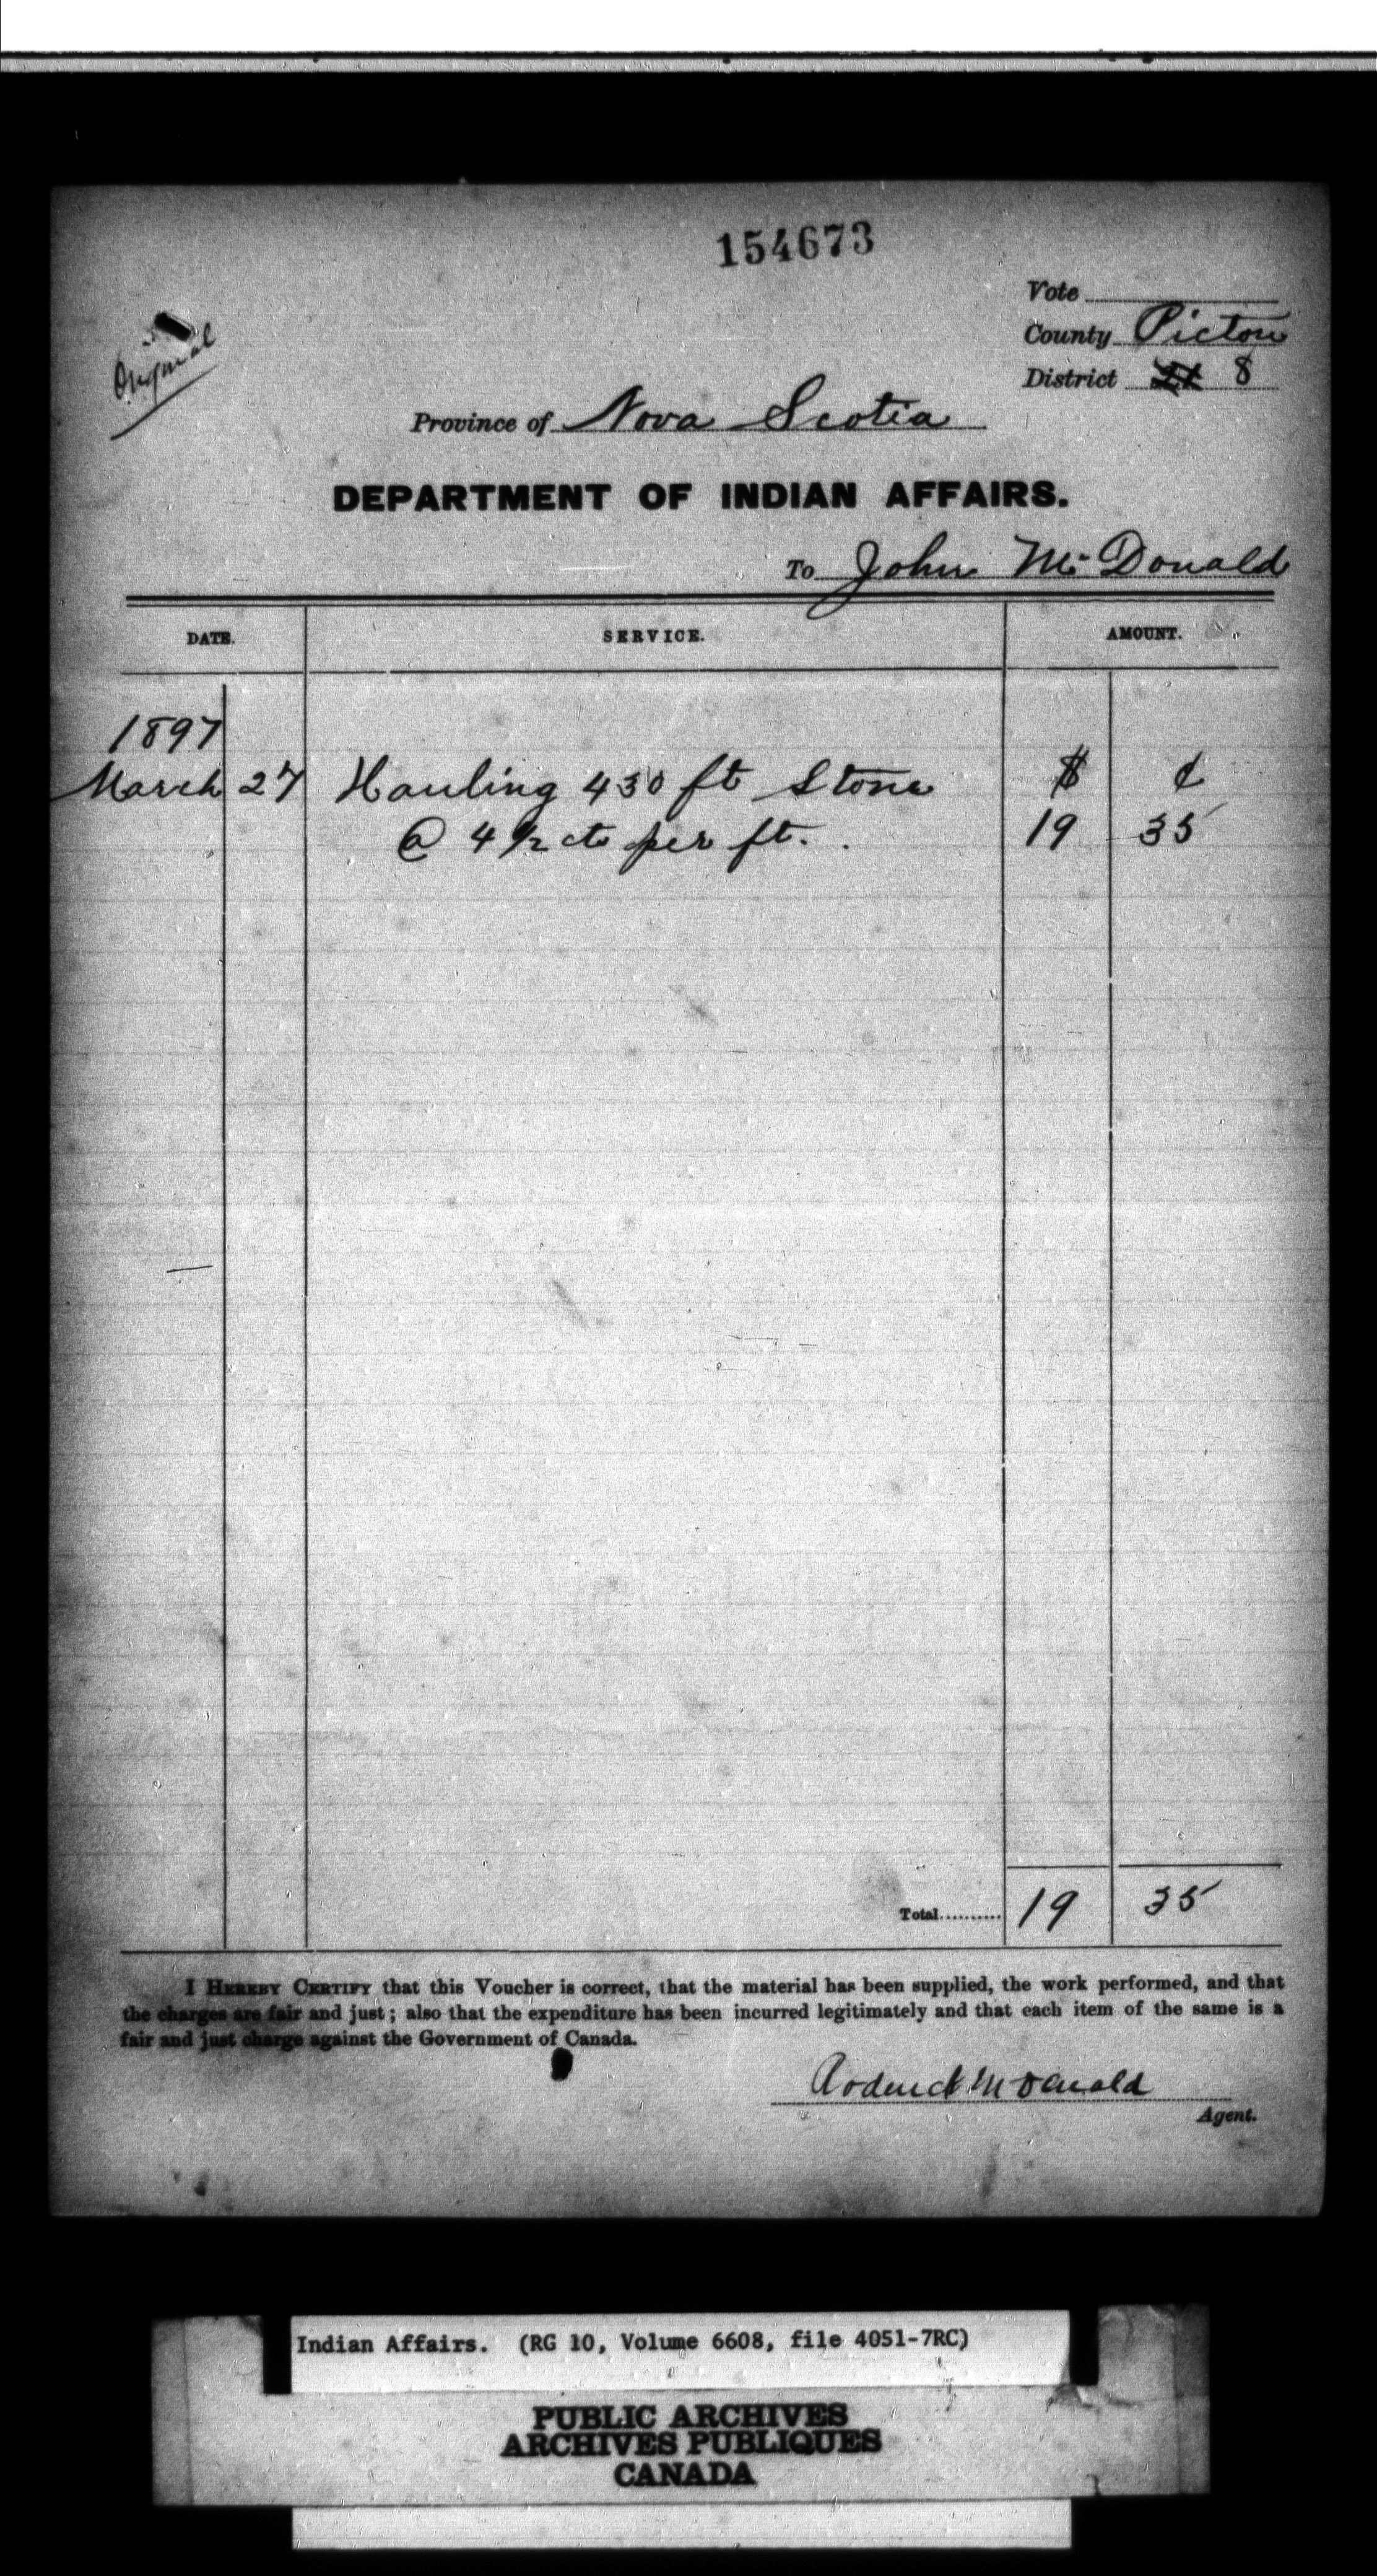 154673
Vote
County Pictou
District 8
Original
Province of Nova Scotia
DEPARTMENT OF INDIAN AFFAIRS.
To John McDonald
DATE. SERVICE. AMOUNT.
1897
March 27 Hauling 430 ft Stone $ ¢
@ 4 1/2 cts per ft. 19 35
Total.......... 19 35
I HEREBY CERTIFY that this Voucher is correct, that the material has been supplied, the work performed, and that
the charges are fair and just; also that the expenditure has been incurred legitimately and that each item of the same is a
fair and just charge against the Government of Canada.
Roderick McDonald
Agent.
Indian Affairs. (RG 10, Volume 6608, file 4051-7RC)
PUBLIC ARCHIVES
ARCHIVES PUBLIQUES
CANADA